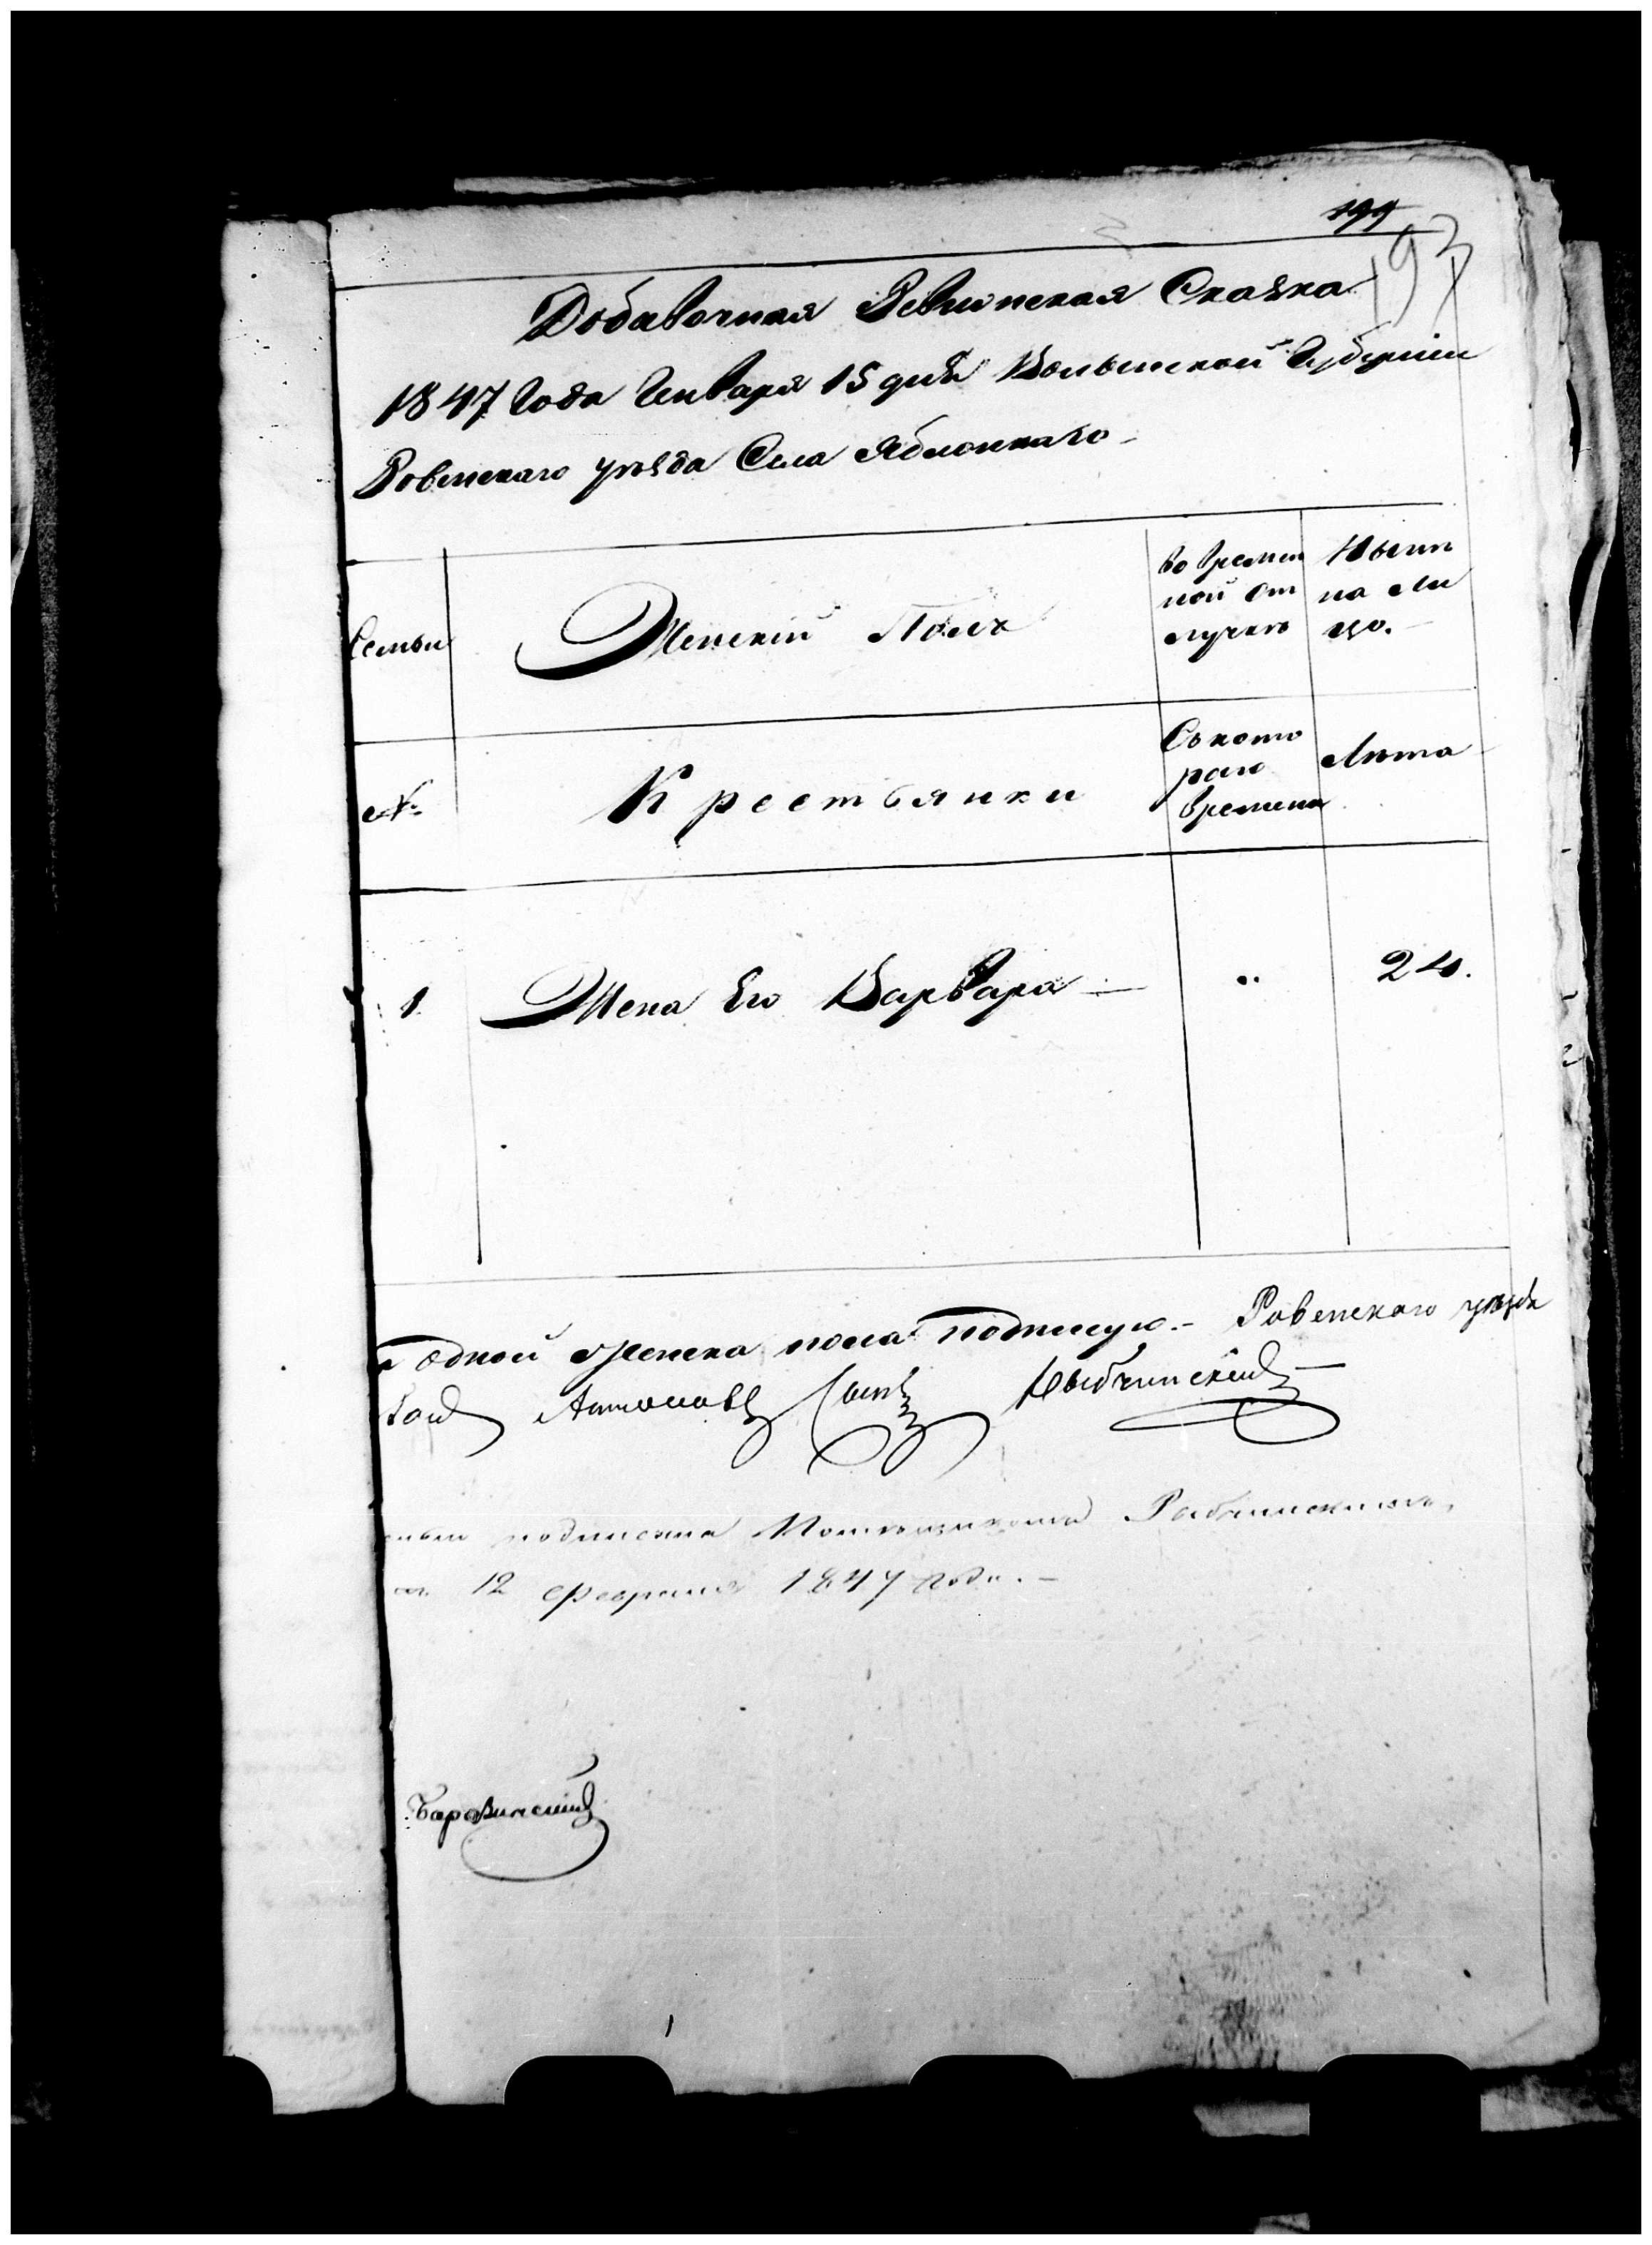 193
Добавочная Ревизская Сказка
1847 Года Генваря 15 дня Волынской Губерніи
Ровенскаго уѣзда Села Яблоннаго
Семьи
Женскій Полъ
Во времен
ной от
лучкѣ
Нынѣ
на ли
цо.
№
Крестьянки
Съ кото
раго
времени
Лѣта
1
Жена Его Варвара —
„
24.
одной женска пола Подписую. — Ровенскаго уѣзда
Антоновъ Сынъ
подписана Помѣщикомъ
12 февраля 1847 года. —